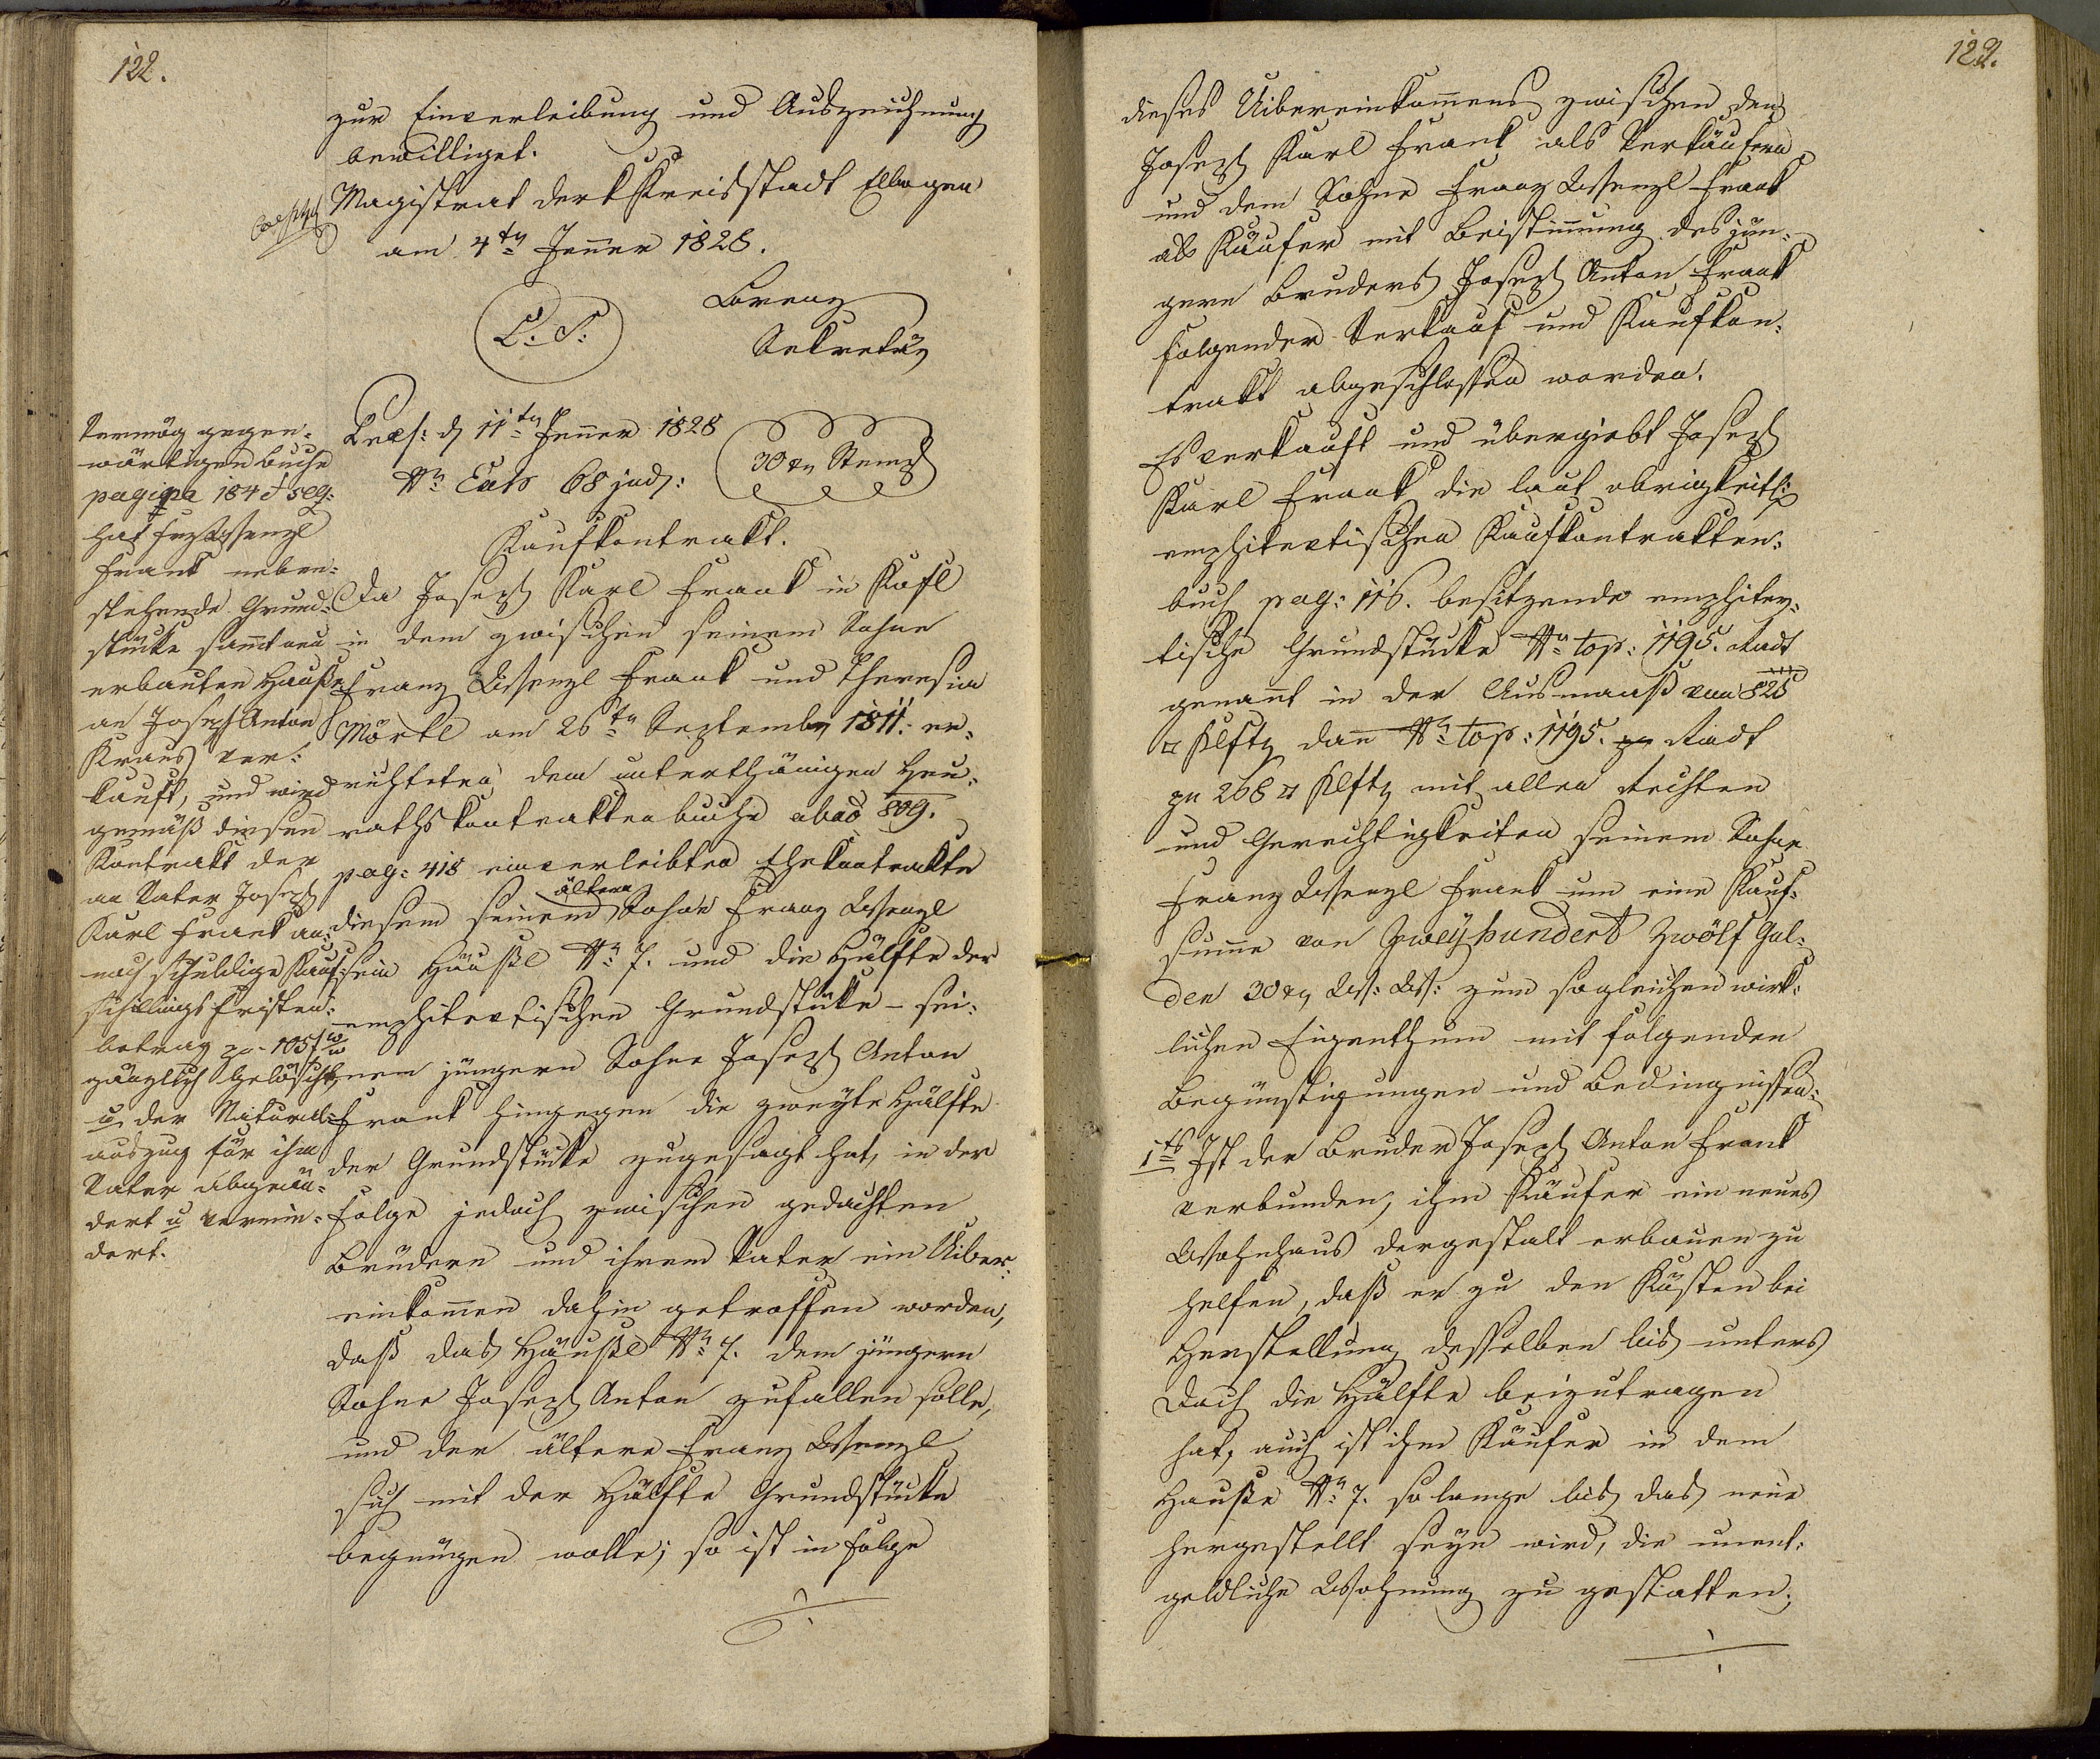 122.
zur Einverleibung und Auszeichnung
bewilliget.
Magistrat der k Kreisstadt Elbogen
am 4tn Jenner 1828.
L. S.
Lorenz
Sekretär
Præs: d 11tn Jenner 1828
Nr Exh 68 jud:
30 xr Stempl
Kaufkontrakt.
Da Joseph Karl Frank in Kösl
in dem zwischen seinem Sohne
Franz Wenzl Frank und Theresia
Mörtl am 26tn September 1811. er=
richteten, dem unterthänigen Heu=
rathskontraktenbuche abad 809.
pag: 418 einverleibten Ehekontrakte
diesem seinem ältern Sohne Franz Wenzl
sein Häußl Nr 7. und die Hälfte der
emphiteutischen Grundstüke – sei=
nem jüngern Sohne Joseph Anton
Frank hingegen die zweyte Hälfte
der Grundstücke zugesagt hat, in der
Folge jedoch zwischen gedachten
Brüdern und ihrem Vater ein Uiber=
einkommen dahin getroffen worden,
daß das Häußl Nr 7. dem jüngern
Sohne Joseph Anton zufallen solle,
und der ältere Franz Wenzl
sich mit der Hälfte Grundstücke
begnügen wolle; so ist in Folge
Vermög gegen=
wärtigen Buche
pagina 184 & seq:
hat Frz Wenzl
Frank neben=
stehende Grund=
stücke sammt neu
erbauten Hauße
an Joseph Anton
Kraus ver=
kauft, und wird
gemäß diesen
Kontrakt der
an Vater Joseph
Karl Frank an=
noch schuldige Kauf=
schillingsfristen=
betrag pr 105 f ww
gänzlich gelöscht
u der Natural=
auszug für ihn
Vater abgeän=
dert u vermin=
dert.
122.
dieses Uibereinkommens zwischen den
Joseph Karl Frank als Verkäufern
und dem Sohne Franz Wenzl Frank
als Käufer mit Beistimmung des jün=
gern Bruders Joseph Anton Frank
folgender Verkauf und Kaufkon=
trakt abgeschlossen worden.
Es verkauft und übergiebt Joseph
Karl Frank die laut obrigkeitl:
emphiteutischen Kaufkontrakten=
buch pag: 116. besitzende emphiteu=
tische Grundstücke Nr top: 1195. Radt
genannt in der Ausmaaß von 825
□ Klftr dann Nr top: 1195. Radt
zu 268 □ Klftr mit allen Rechten
und Gerechtigkeiten seinem Sohne
Franz Wenzl Frank um eine Kauf=
summe von Zweyhundert Zwölf Gul=
den 30 xr W: W: zum sogleichen wirk=
lichen Eigenthum mit folgenden
Begünstigungen und Bedingnissen:
1tes Ist der Bruder Joseph Anton Frank
verbunden, ihm Käufer ein neues
Wohnhaus dergestalt erbauen zu
helfen, daß er zu den Kösten bei
Herstellung desselben bis unters
Dach die Hälfte beizutragen
hat, auch ist ihm Käufer in dem
Hauße Nr 7. so lange bis das neue
hergestellt seyn wird, die unent=
geldliche Wohnung zu gestatten;